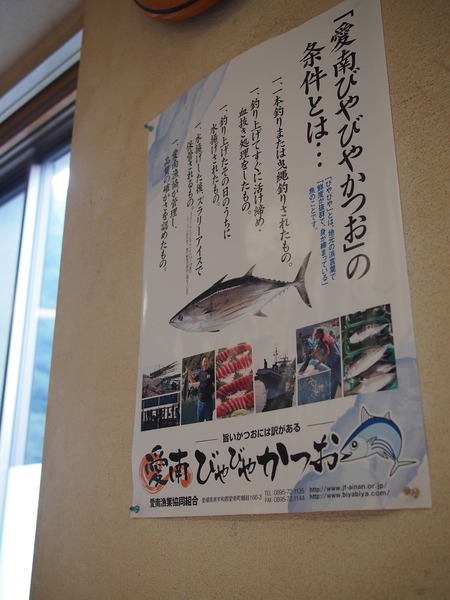 「愛南びやびやかつお」の
条件とは…
「びやびや」とは、地元の浜言葉で
「鮮度が抜群で、身が締まっている」
魚のことです。
一、一本釣りまたは曳縄釣りされたもの。
一、釣り上げてすぐに活け締め・
血抜き処理をしたもの。
一、釣り上げたその日のうちに
水揚げされたもの。
一、水揚げした後、スラリーアイスで
保管されるもの。
一、愛南漁協が管理し、
品質の確かさを認めたもの。
旨いかつおには訳がある
愛南びやびやかつお
愛南漁業協同組合
愛媛県南宇和郡愛南町鯆越166-3
TEL:0895-72-1135
FAX:0895-73-1144
http://www.jf-ainan.or.jp/
http://www.biyabiya.com/